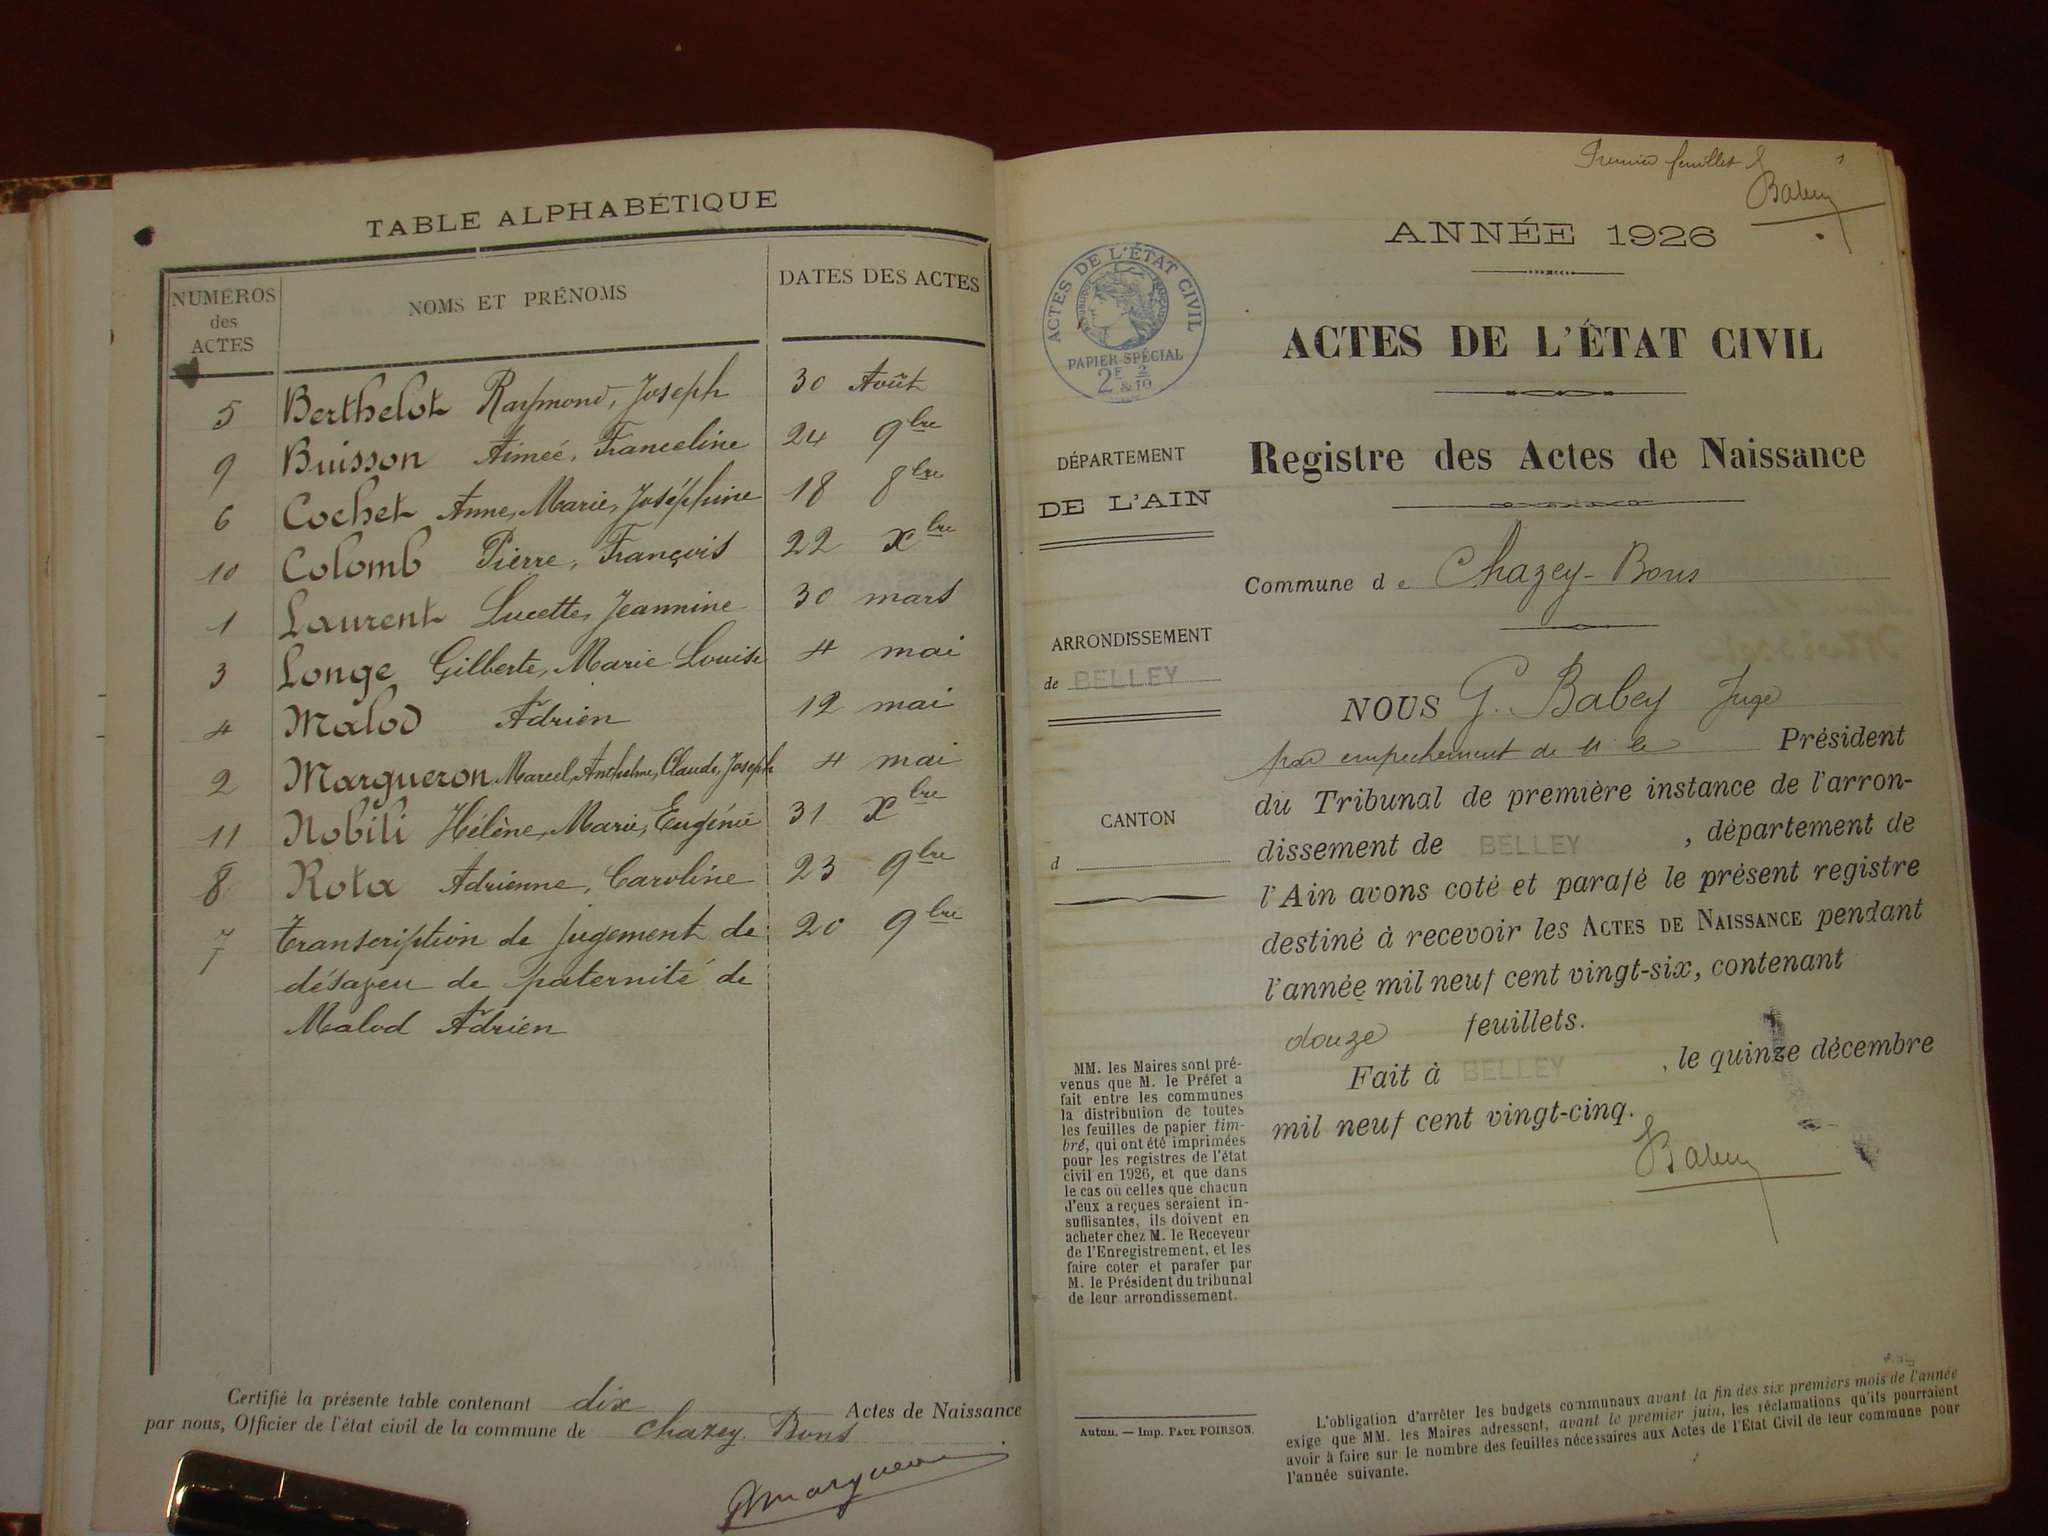 TABLE ALPHABÉTIQUE
NUMÉROS des ACTES NOMS ET PRÉNOMS DATES DES ACTES
5 Berthelot Raymond, Joseph 30 Août
9 Buisson Aimée, Franceline 24 9bre
6 Cochet Anne, Marie, Joséphine 18 8bre
10 Colomb Pierre, François 22 Xbre
1 Laurent Lucette, Jeannine 30 mars
3 Longe Gilberte, Marie Louise 4 mai
4 Malod Adrien 12 mai
2 Margueron Marcel, Anthelme, Claude, Joseph 4 mai
11 Nobili Hélène, Marie, Eugénie 31 Xbre
8 Rota Adrienne, Caroline 23 9bre
7 transcription de jugement de 20 9bre
désaveu de paternité de
Malod Adrien
Certifié la présente table contenant dix Actes de Naissance
par nous, Officier de l'état civil de la commune de Chazey-Bons
Margueron
Premier feuillet
1
Babey
ANNÉE 1926
ACTES DE L'ÉTAT CIVIL
PAPIER SPÉCIAL
2F & 2/10
ACTES DE L'ÉTAT CIVIL
Registre des Actes de Naissance
DÉPARTEMENT
DE L'AIN
Commune de Chazey-Bons
ARRONDISSEMENT
de BELLEY
CANTON
d
NOUS G. Babey Juge
par empechement de M le Président
du Tribunal de première instance de l'arron-
dissement de BELLEY, département de
l'Ain avons coté et parafé le présent registre
destiné à recevoir les ACTES DE NAISSANCE pendant
l'année mil neuf cent vingt-six, contenant
douze feuillets.
Fait à BELLEY, le quinze décembre
mil neuf cent vingt-cinq.
Babey
MM. les Maires sont pré-
venus que M. le Préfet a
fait entre les communes
la distribution de toutes
les feuilles de papier tim-
bré, qui ont été imprimées
pour les registres de l'état
civil en 1926, et que dans
le cas où celles que chacun
d'eux a reçues seraient in-
suffisantes, ils doivent en
acheter chez M. le Receveur
de l'Enregistrement, et les
faire coter et parafer par
M. le Président du tribunal
de leur arrondissement.
Autun. — Imp. PAUL POIRSON.
L'obligation d'arrêter les budgets communaux avant la fin des six premiers mois de l'année
exige que MM. les Maires adressent, avant le premier juin, les réclamations qu'ils pourraient
avoir à faire sur le nombre des feuilles nécessaires aux Actes de l'Etat Civil de leur commune pour
l'année suivante.